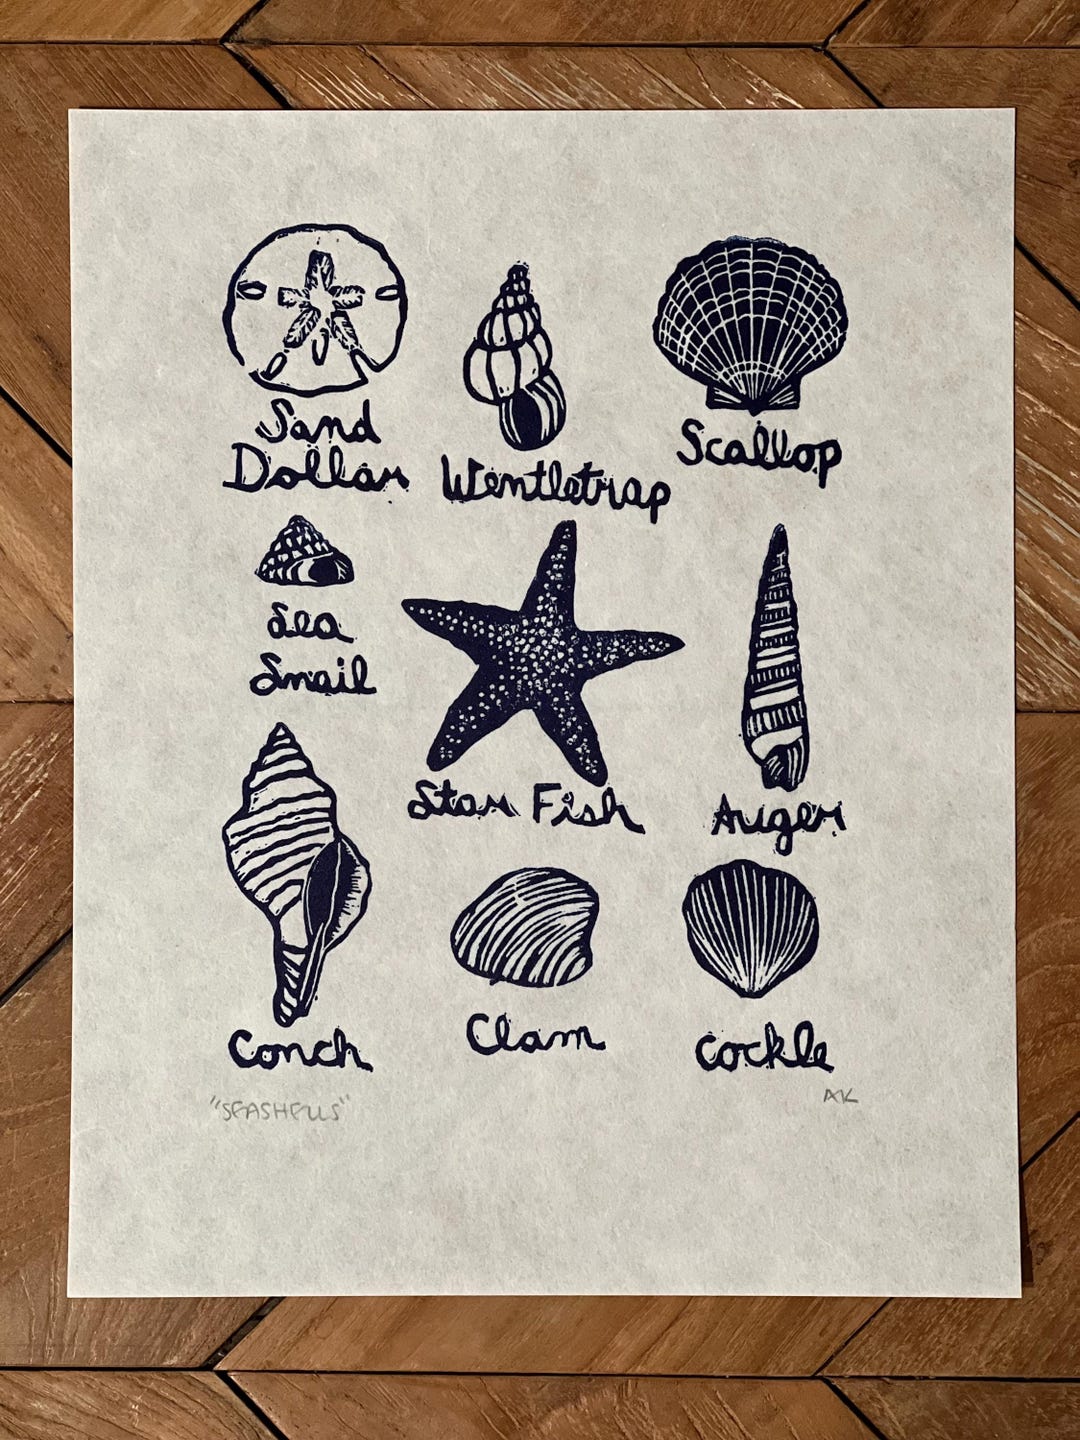 Sand
Dollar
Wentletrap
Scallop
Sea
Snail
Star Fish
Auger
Conch
Clam
Cockle
"SEASHELLS"
AK